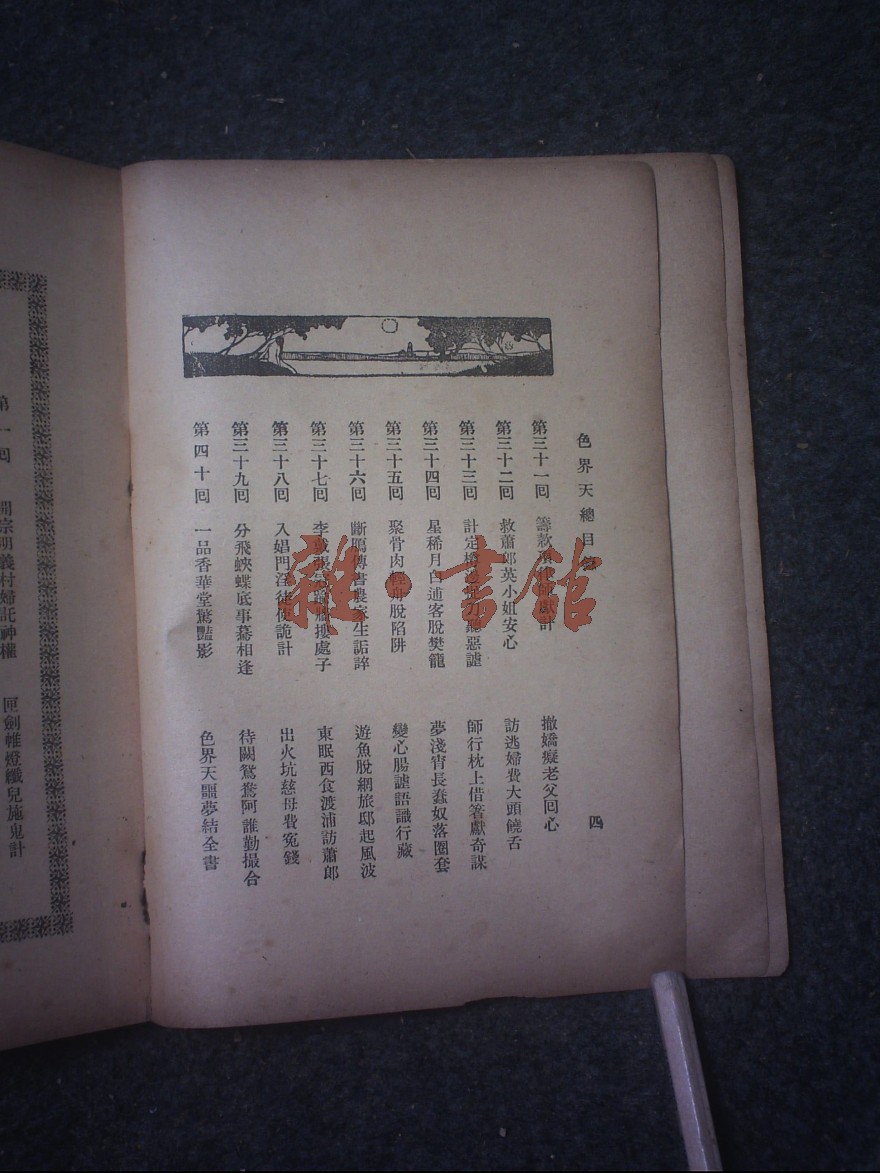 色界天總目 四
第三十一回 籌款項 獻計 撤嬌癡老父回心
第三十二回 救蕭郎英小姐安心 訪逃婦費大頭饒舌
第三十三回 計定 惡謔 師行枕上借箸獻奇謀
第三十四回 星稀月白逋客脫樊籠 夢淺宵長蠢奴落圈套
第三十五回 聚骨肉輕舟脫陷阱 變心腸謔語識行藏
第三十六回 斷鴈傳書農家生詬誶 遊魚脫網旅邸起風波
第三十七回 李戴張冠 摟處子 東眠西食渡浦訪蕭郎
第三十八回 入娼門淫徒使詭計 出火坑慈母費冤錢
第三十九回 分飛蛺蝶底事驀相逢 待闕鴛鴦阿誰勤撮合
第四十回 一品香華堂驚豔影 色界天噩夢結全書
第一回 開宗明義村婦託神權 匣劍帷燈孅兒施鬼計
雜·書館